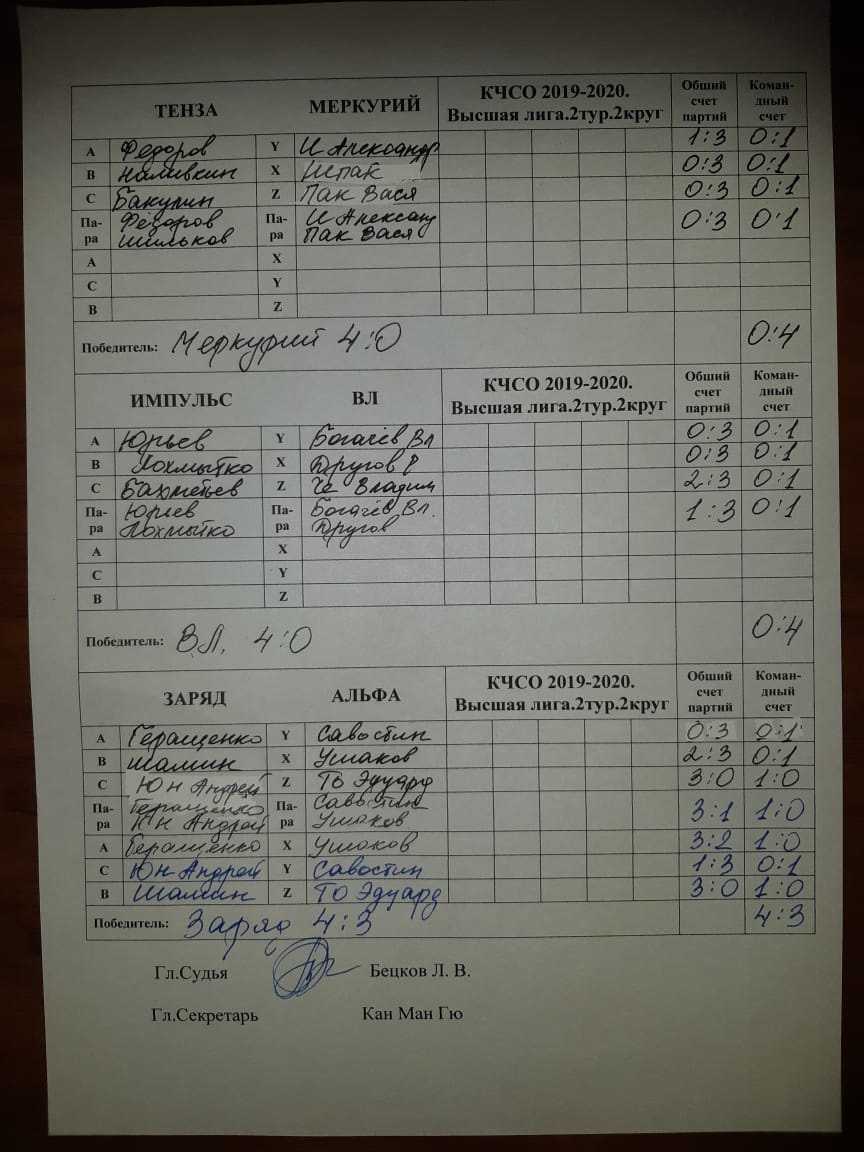 ТЕНЗА МЕРКУРИЙ КЧСО 2019-2020. Высшая лига.2тур.2круг Общий счет партий Коман-дный счет
A Федоров Y И Александр 1:3 0:1
B Наливкин X Ипак 0:3 0:1
C Бакулин Z Пак Вася 0:3 0:1
Па-ра Фёдоров Шильков Па-ра И Александ Пак Вася 0:3 0:1
A X
C Y
B Z
Победитель: Меркурий 4:0 0:4
ИМПУЛЬС ВЛ КЧСО 2019-2020. Высшая лига.2тур.2круг Общий счет партий Коман-дный счет
A Юрьев Y Богачёв Вл 0:3 0:1
B Лохмытко X Другов Р 0:3 0:1
C Бахметьев Z Че Владим 2:3 0:1
Па-ра Юрьев Лохмытко Па-ра Богачёв Вл. Другов 1:3 0:1
A X
C Y
B Z
Победитель: ВЛ. 4:0 0:4
ЗАРЯД АЛЬФА КЧСО 2019-2020. Высшая лига.2тур.2круг Общий счет партий Коман-дный счет
A Геращенко Y Савостин 0:3 0:1
B Шамин X Ушаков 2:3 0:1
C Юн Андрей Z То Эдуард 3:0 1:0
Па-ра Геращенко Юн Андрей Па-ра Савостин Ушаков 3:1 1:0
A Геращенко X Ушаков 3:2 1:0
C Юн Андрей Y Савостин 1:3 0:1
B Шамин Z То Эдуард 3:0 1:0
Победитель: Заряд 4:3 4:3
Гл.Судья Бецков Л. В.
Гл.Секретарь Кан Ман Гю